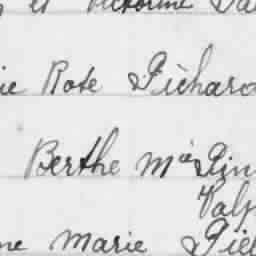 et Victorine
ie Rose Pichard
Berthe Mie Pin
Valp
ne Marie Piel